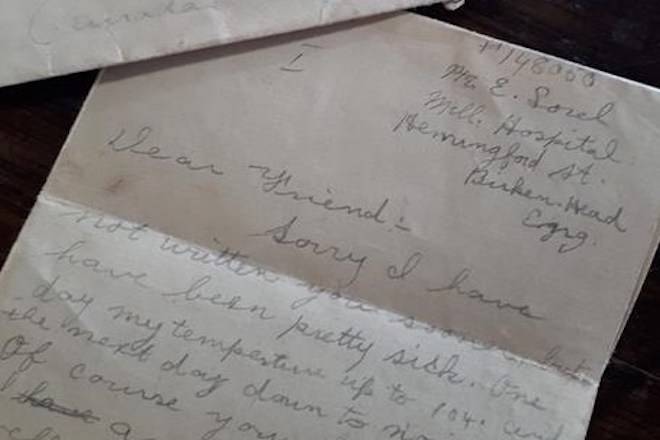 Canada
I
Pte. E. Sorel
Mill. Hospital
Hemingford St.
Birken-Head
Eng.
Dear Friend:-
Sorry I have
not written you sooner, but
have been pretty sick. One
day my temperture up to 104° and
the next day down to
Of course you
I have a